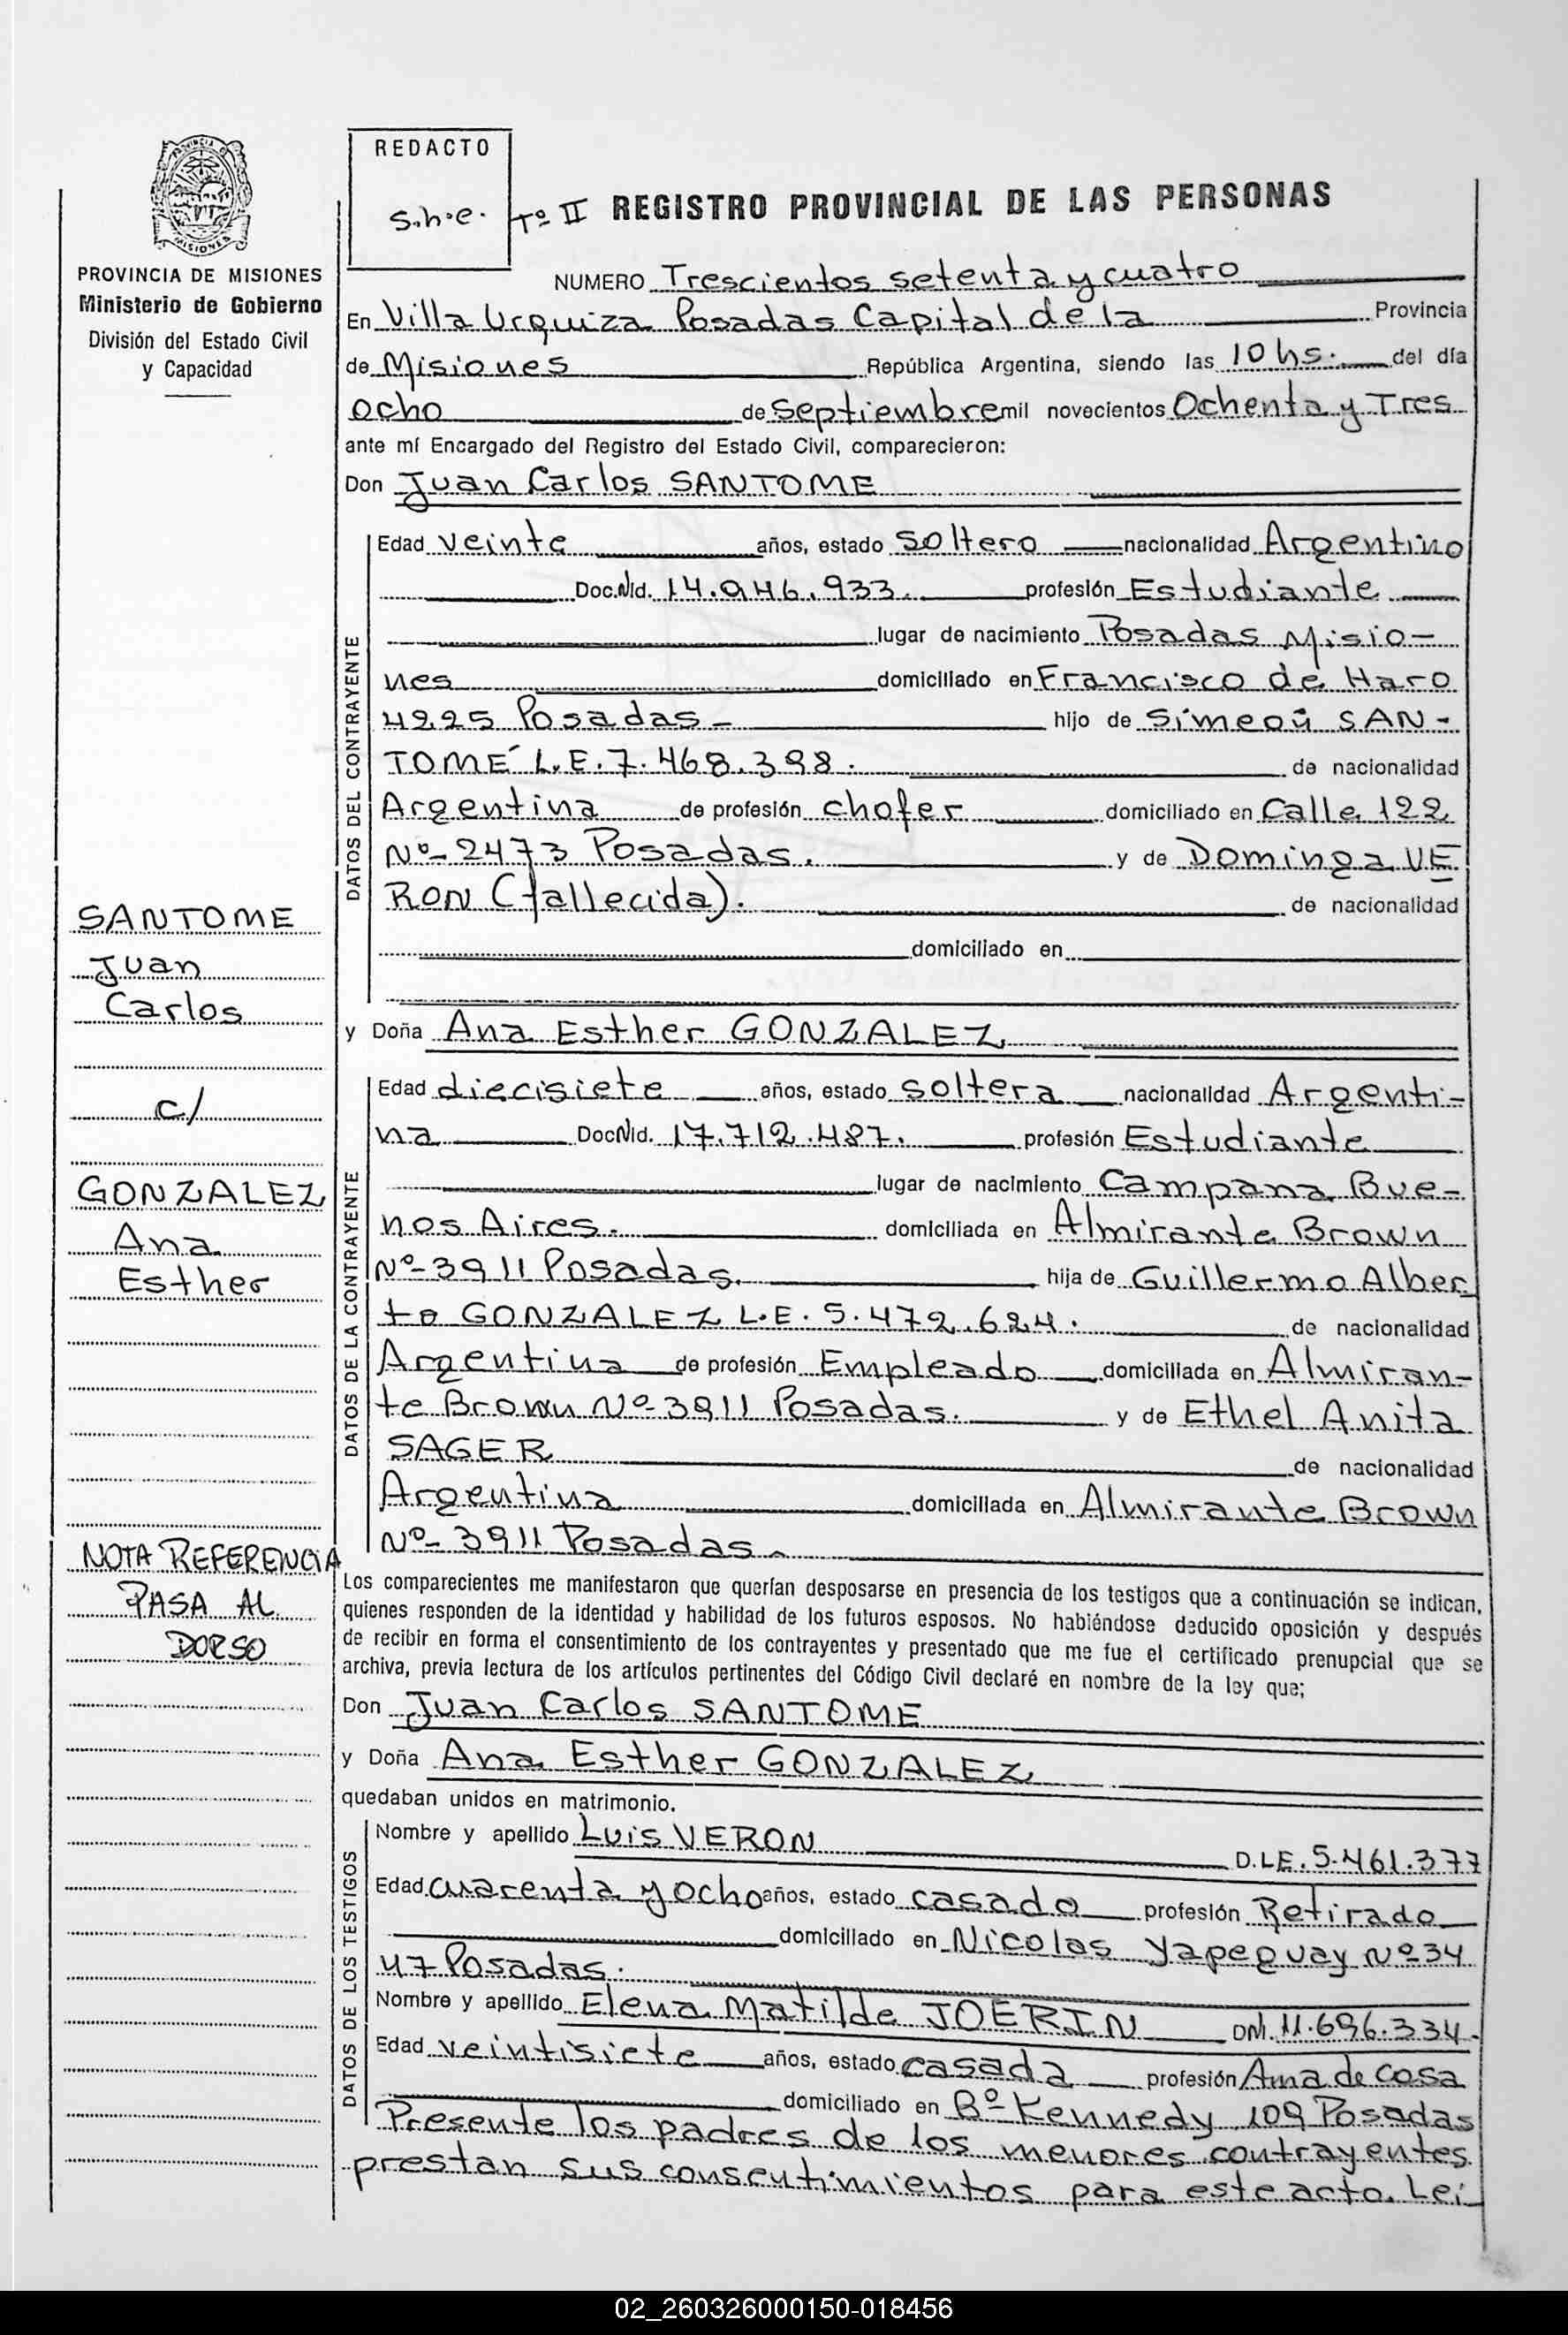 REDACTO
s.h.e.
Tº II REGISTRO PROVINCIAL DE LAS PERSONAS
PROVINCIA DE MISIONES
Ministerio de Gobierno
División del Estado Civil
y Capacidad
NUMERO Trescientos setenta y cuatro
En Villa Urquiza Posadas Capital de la Provincia
de Misiones República Argentina, siendo las 10 hs. del día
ocho de septiembre mil novecientos Ochenta y Tres
ante mí Encargado del Registro del Estado Civil, comparecieron:
Don Juan Carlos SANTOME
DATOS DEL CONTRAYENTE
Edad veinte años, estado soltero nacionalidad Argentino
Doc.NId. 14.946.933. profesión Estudiante
lugar de nacimiento Posadas Misio-
nes domiciliado en Francisco de Haro
4225 Posadas- hijo de Simeón SAN-
TOMÉ L.E. 7.468.398. de nacionalidad
Argentina de profesión chofer domiciliado en Calle 122
Nº 2473 Posadas. y de Dominga VE
RON (fallecida). de nacionalidad
domiciliado en
SANTOME
Juan
Carlos
c/
GONZALEZ
Ana
Esther
y Doña Ana Esther GONZALEZ
DATOS DE LA CONTRAYENTE
Edad diecisiete años, estado soltera nacionalidad Argenti-
na DocNId. 17.712.487. profesión Estudiante
lugar de nacimiento Campana Bue-
nos Aires. domiciliada en Almirante Brown
Nº 3911 Posadas. hija de Guillermo Alber
to GONZALEZ L.E. 5.472.624. de nacionalidad
Argentina de profesión Empleado domiciliada en Almiran-
te Brown Nº 3911 Posadas. y de Ethel Anita
SAGER de nacionalidad
Argentina domiciliada en Almirante Brown
Nº 3911 Posadas.
NOTA REFERENCIA
PASA AL
DORSO
Los comparecientes me manifestaron que querían desposarse en presencia de los testigos que a continuación se indican,
quienes responden de la identidad y habilidad de los futuros esposos. No habiéndose deducido oposición y después
de recibir en forma el consentimiento de los contrayentes y presentado que me fue el certificado prenupcial que se
archiva, previa lectura de los artículos pertinentes del Código Civil declaré en nombre de la ley que;
Don Juan Carlos SANTOME
y Doña Ana Esther GONZALEZ
quedaban unidos en matrimonio.
DATOS DE LOS TESTIGOS
Nombre y apellido Luis VERON D.LE. 5.461.377
Edad cuarenta y ocho años, estado casado profesión Retirado
domiciliado en Nicolas Yapeguay Nº 34
47 Posadas.
Nombre y apellido Elena Matilde JOERIN DNI. 11.696.334.
Edad veintisiete años, estado casada profesión Ama de casa
domiciliado en Bº Kennedy 109 Posadas
Presente los padres de los menores contrayentes
prestan sus consentimientos para este acto. Lei
02_260326000150-018456